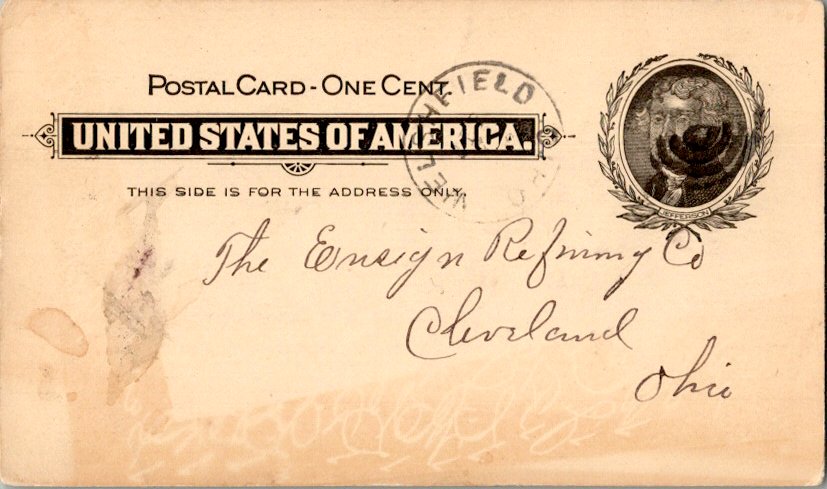 POSTAL CARD - ONE CENT.
UNITED STATES OF AMERICA.
THIS SIDE IS FOR THE ADDRESS ONLY.
WELSHFIELD
JEFFERSON
The Ensign Refining Co
Cleveland
Ohio